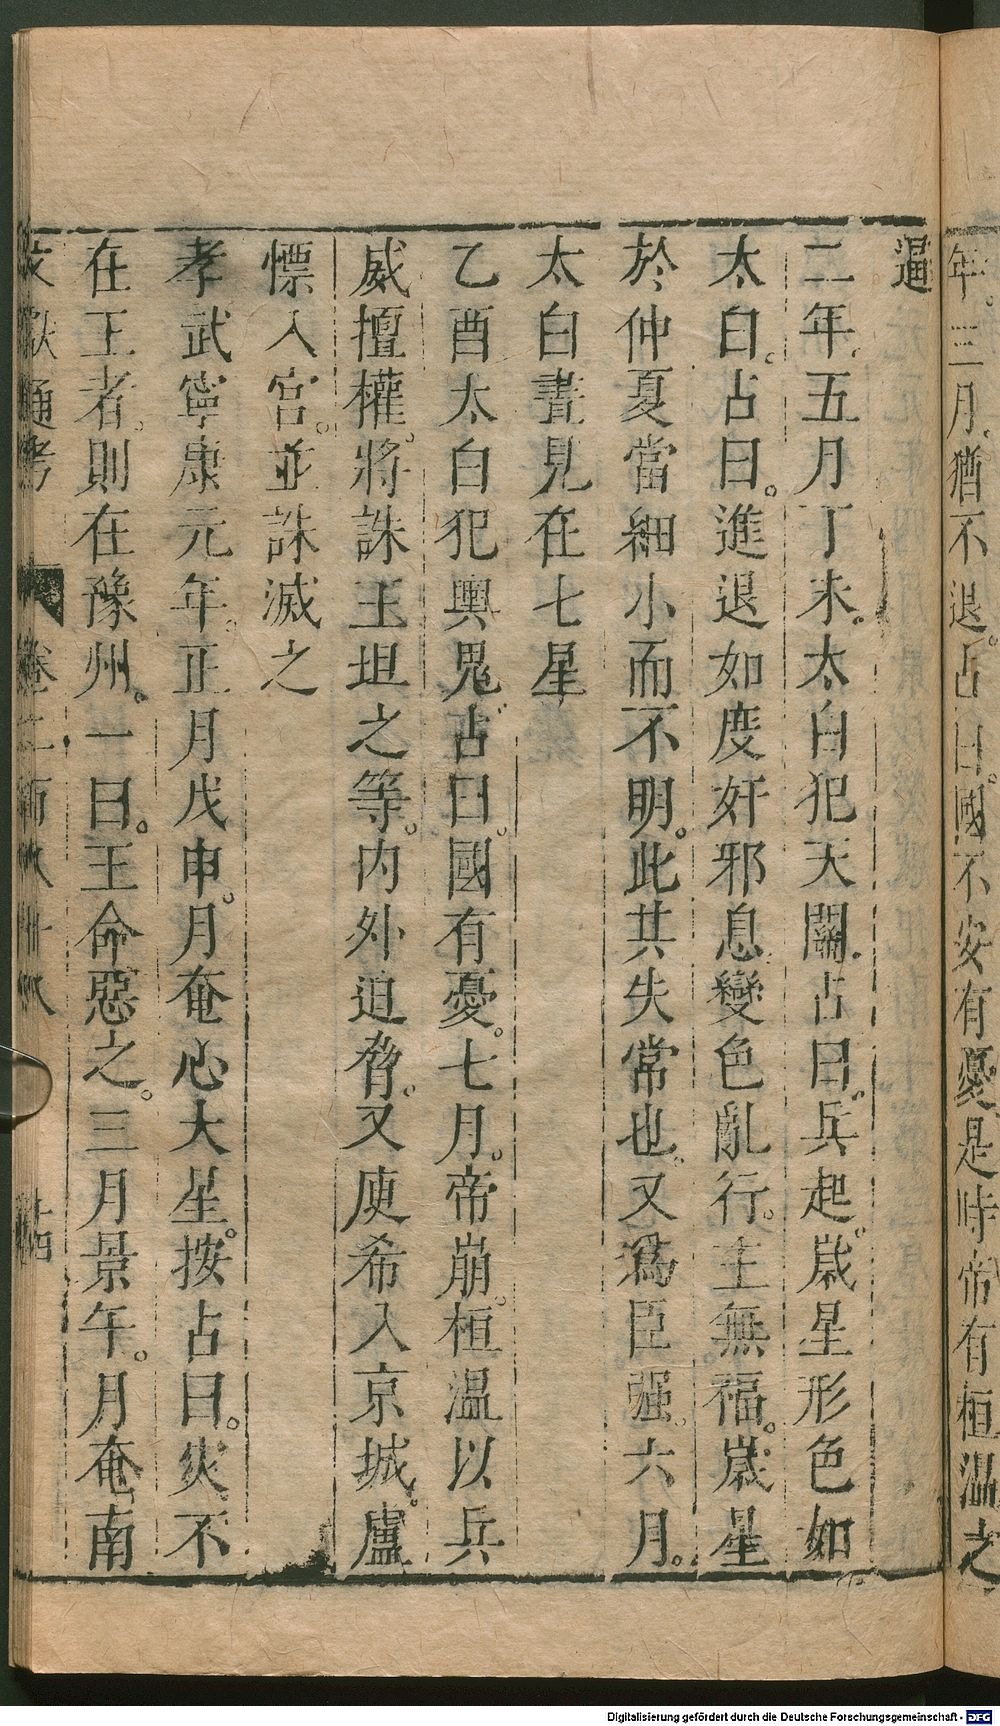 年。三月。猶不退。占曰。國不安有憂是時帝有桓溫之
逼
二年。五月丁未。太白犯天關。占曰。兵起。歲星形色如
太白。占曰。進退如度奸邪息變色亂行。主無福。歲星
於仲夏當細小而不明。此其失常也。又爲臣强。六月。
太白晝見在七星
乙酉太白犯輿鬼。占曰。國有憂。七月。帝崩。桓溫以兵
威擅權。將誅王坦之等。内外迫脅。又庾希入京城。盧
慓入宮。並誅滅之
孝武寧康元年。正月戊申。月奄心大星。按占曰。災不
在王者。則在豫州。一曰。王命惡之。三月景午。月奄南
文獻通考 卷二百八十八 十四
Digitalisierung gefördert durch die Deutsche Forschungsgemeinschaft - DFG